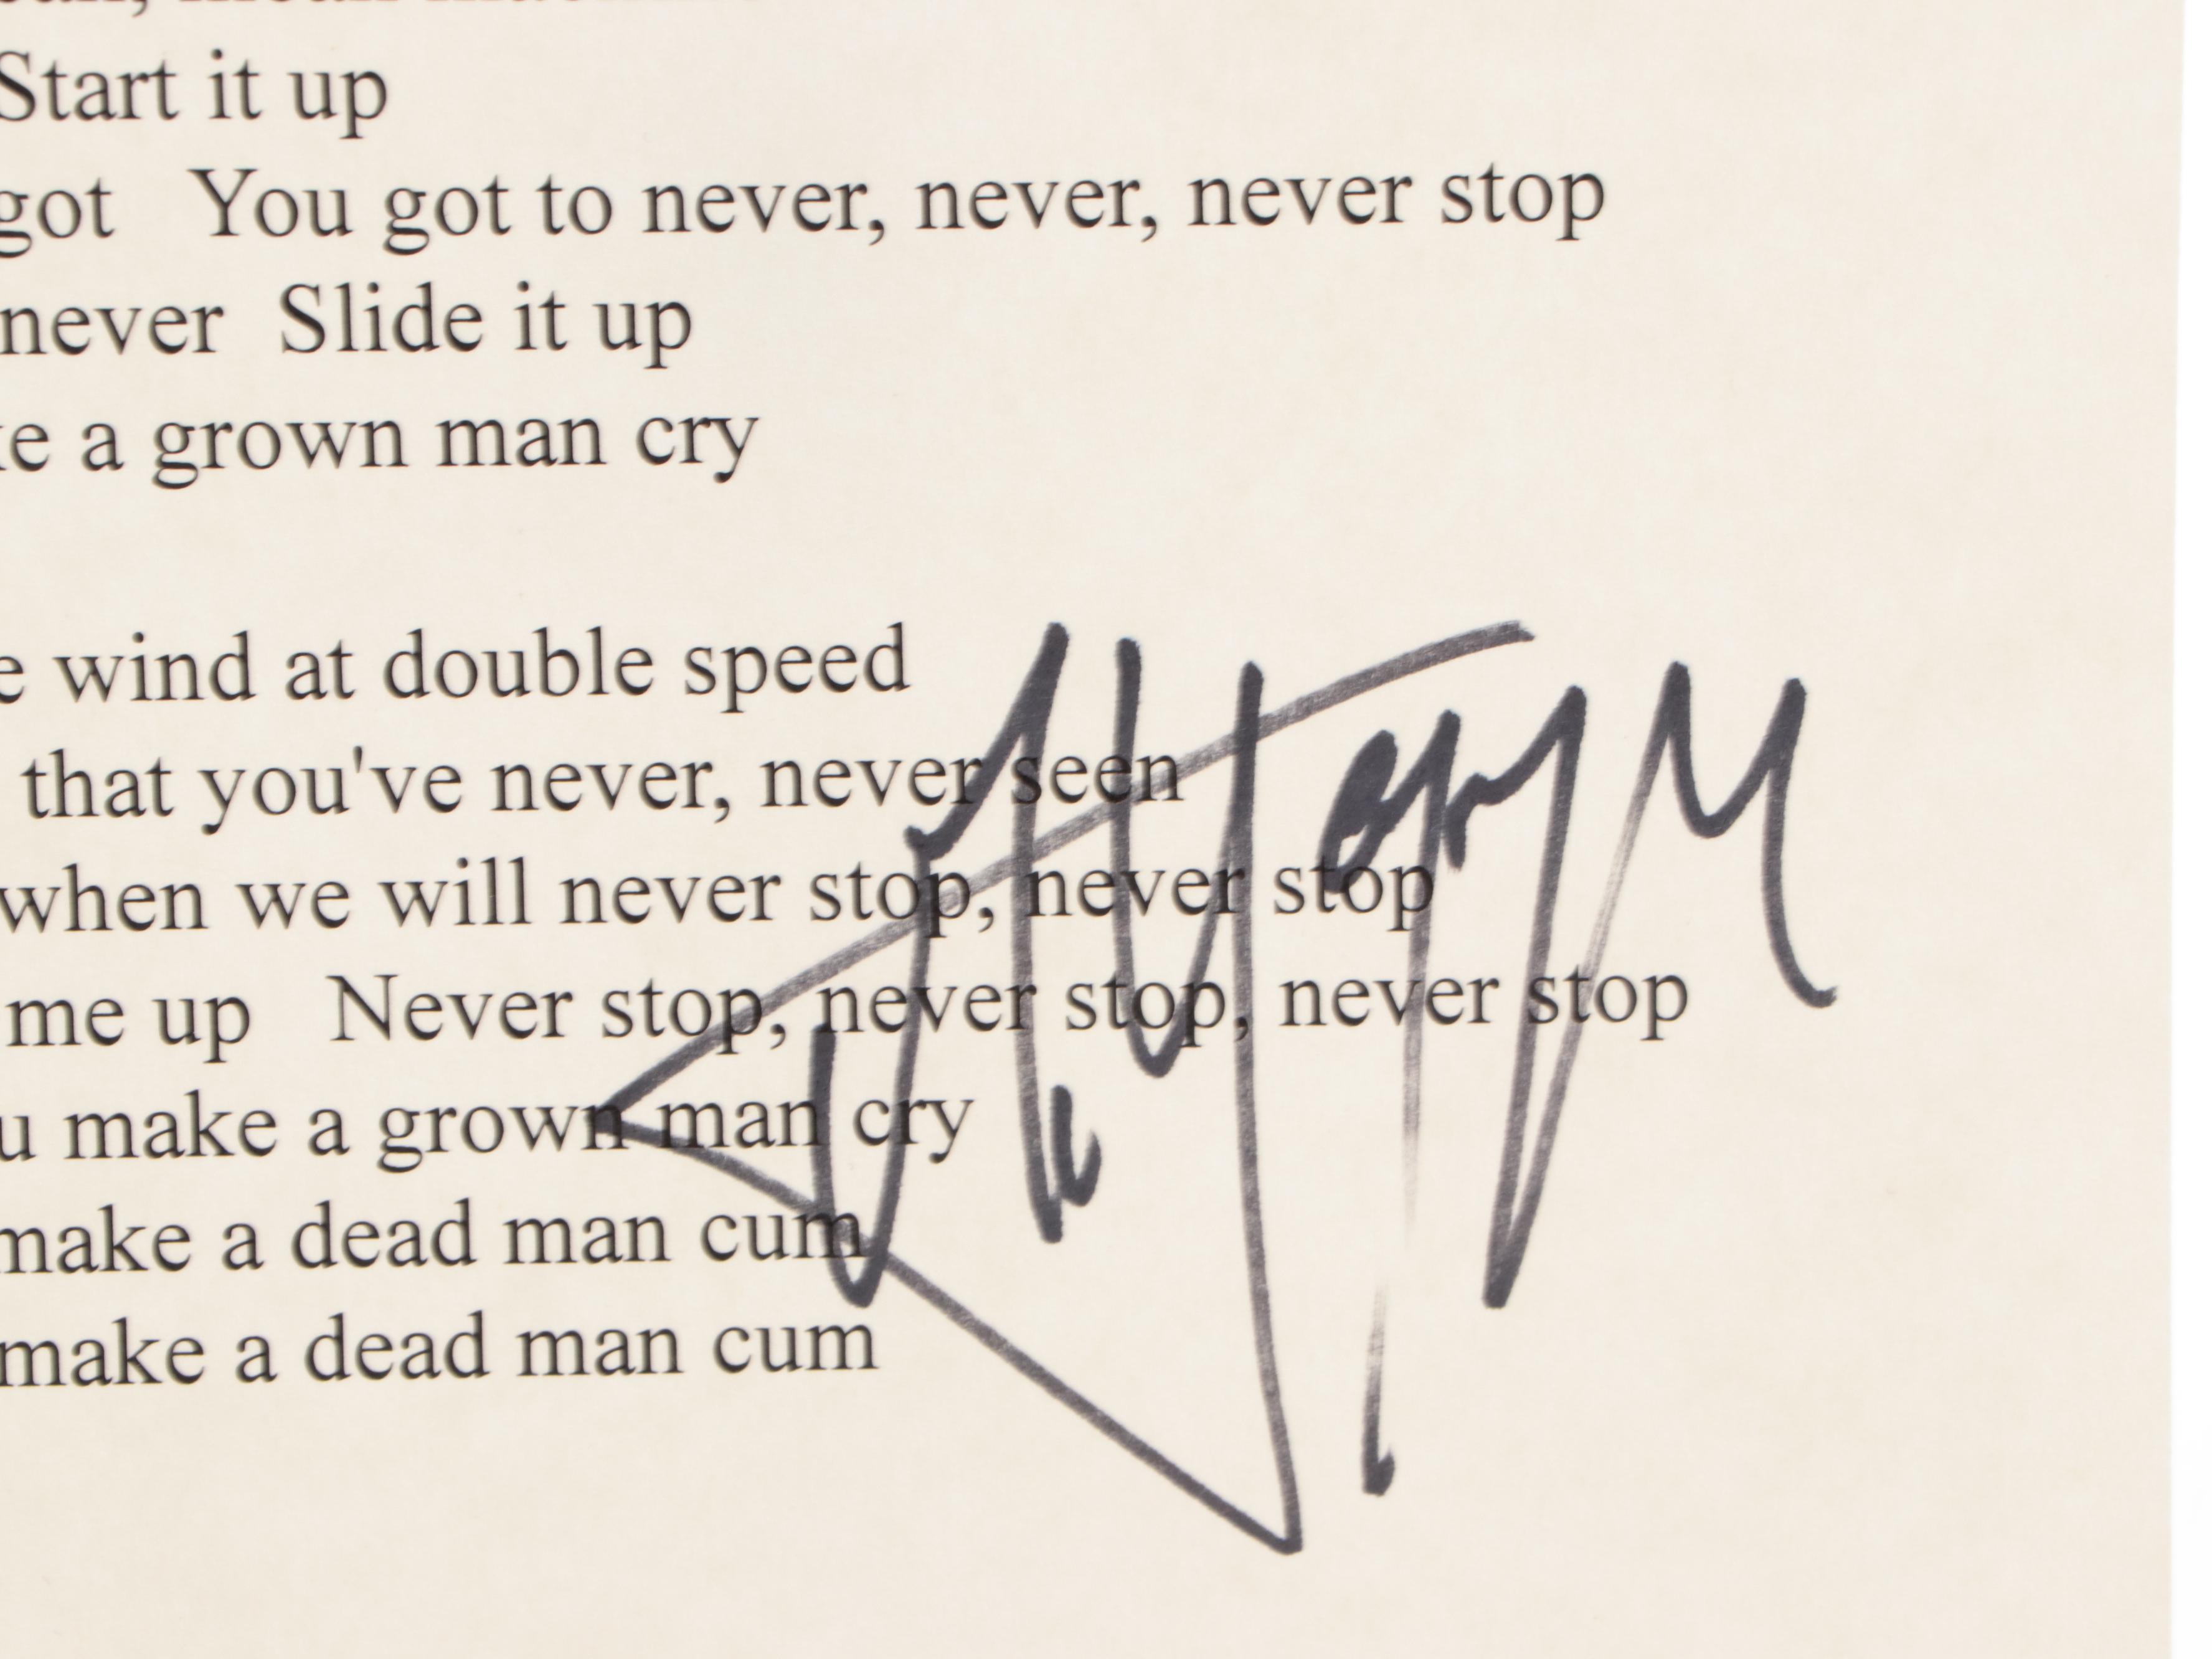 Start it up
got You got to never, never, never stop
never Slide it up
a grown man cry
wind at double speed
that you've never, never seen
when we will never stop, never stop
me up Never stop, never stop, never stop
make a grown man cry
make a dead man cum
make a dead man cum